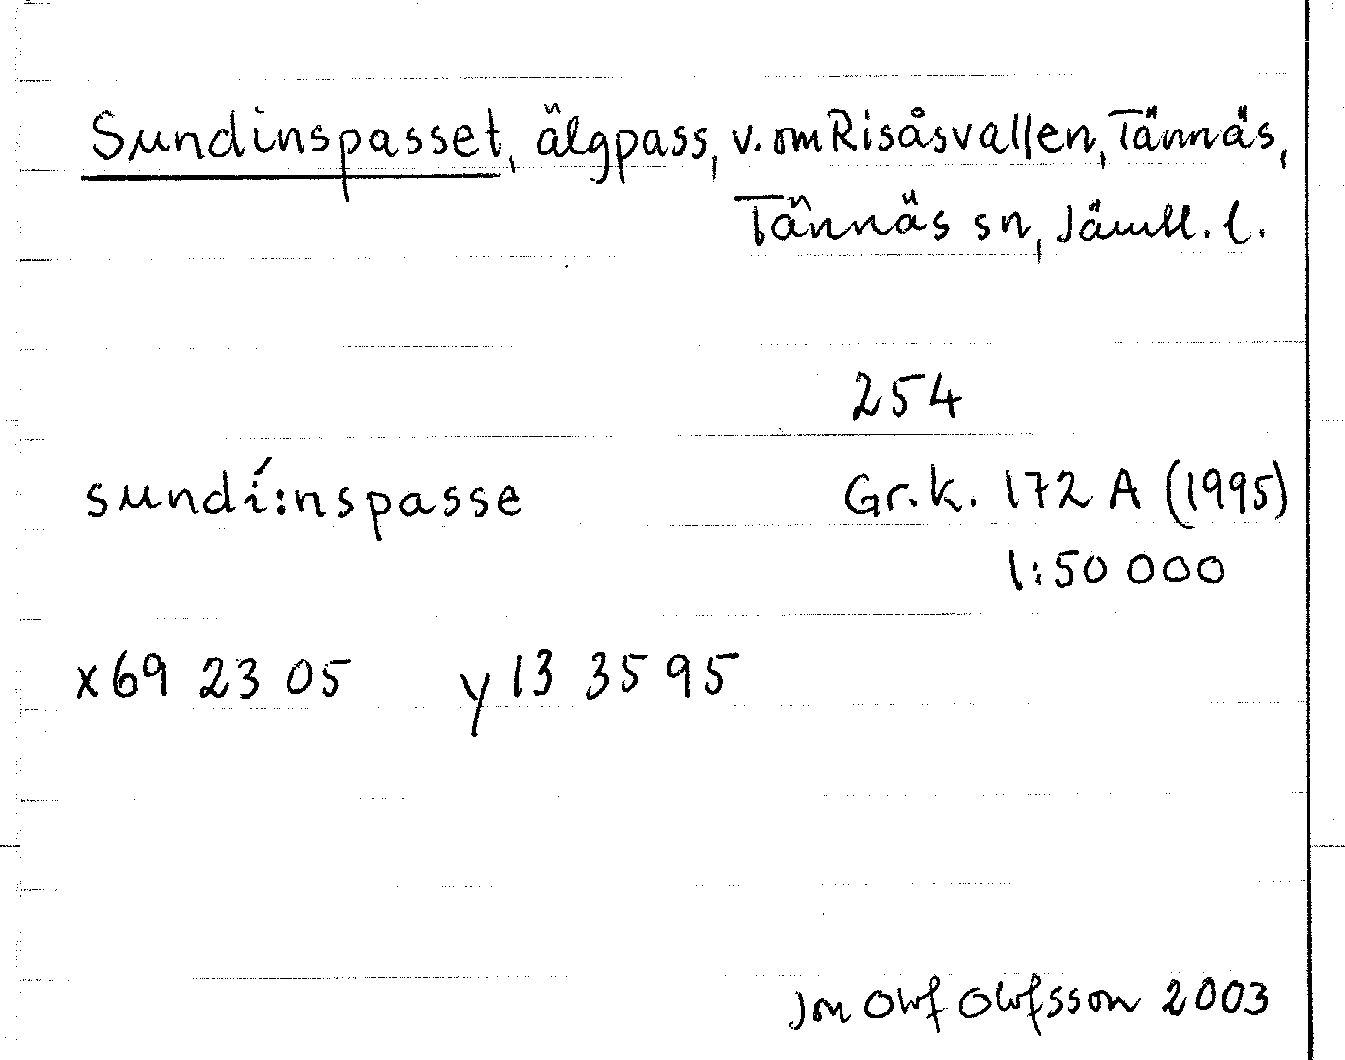 Sundinspasset, älgpass, v. om Risåsvallen, Tännäs,
Tännäs sn, Jämtl. l.
254
sundí:nspasse
Gr.k. 172 A (1995)
1:50 000
x 69 23 05 y 13 35 95
Jon Olof Olofsson 2003